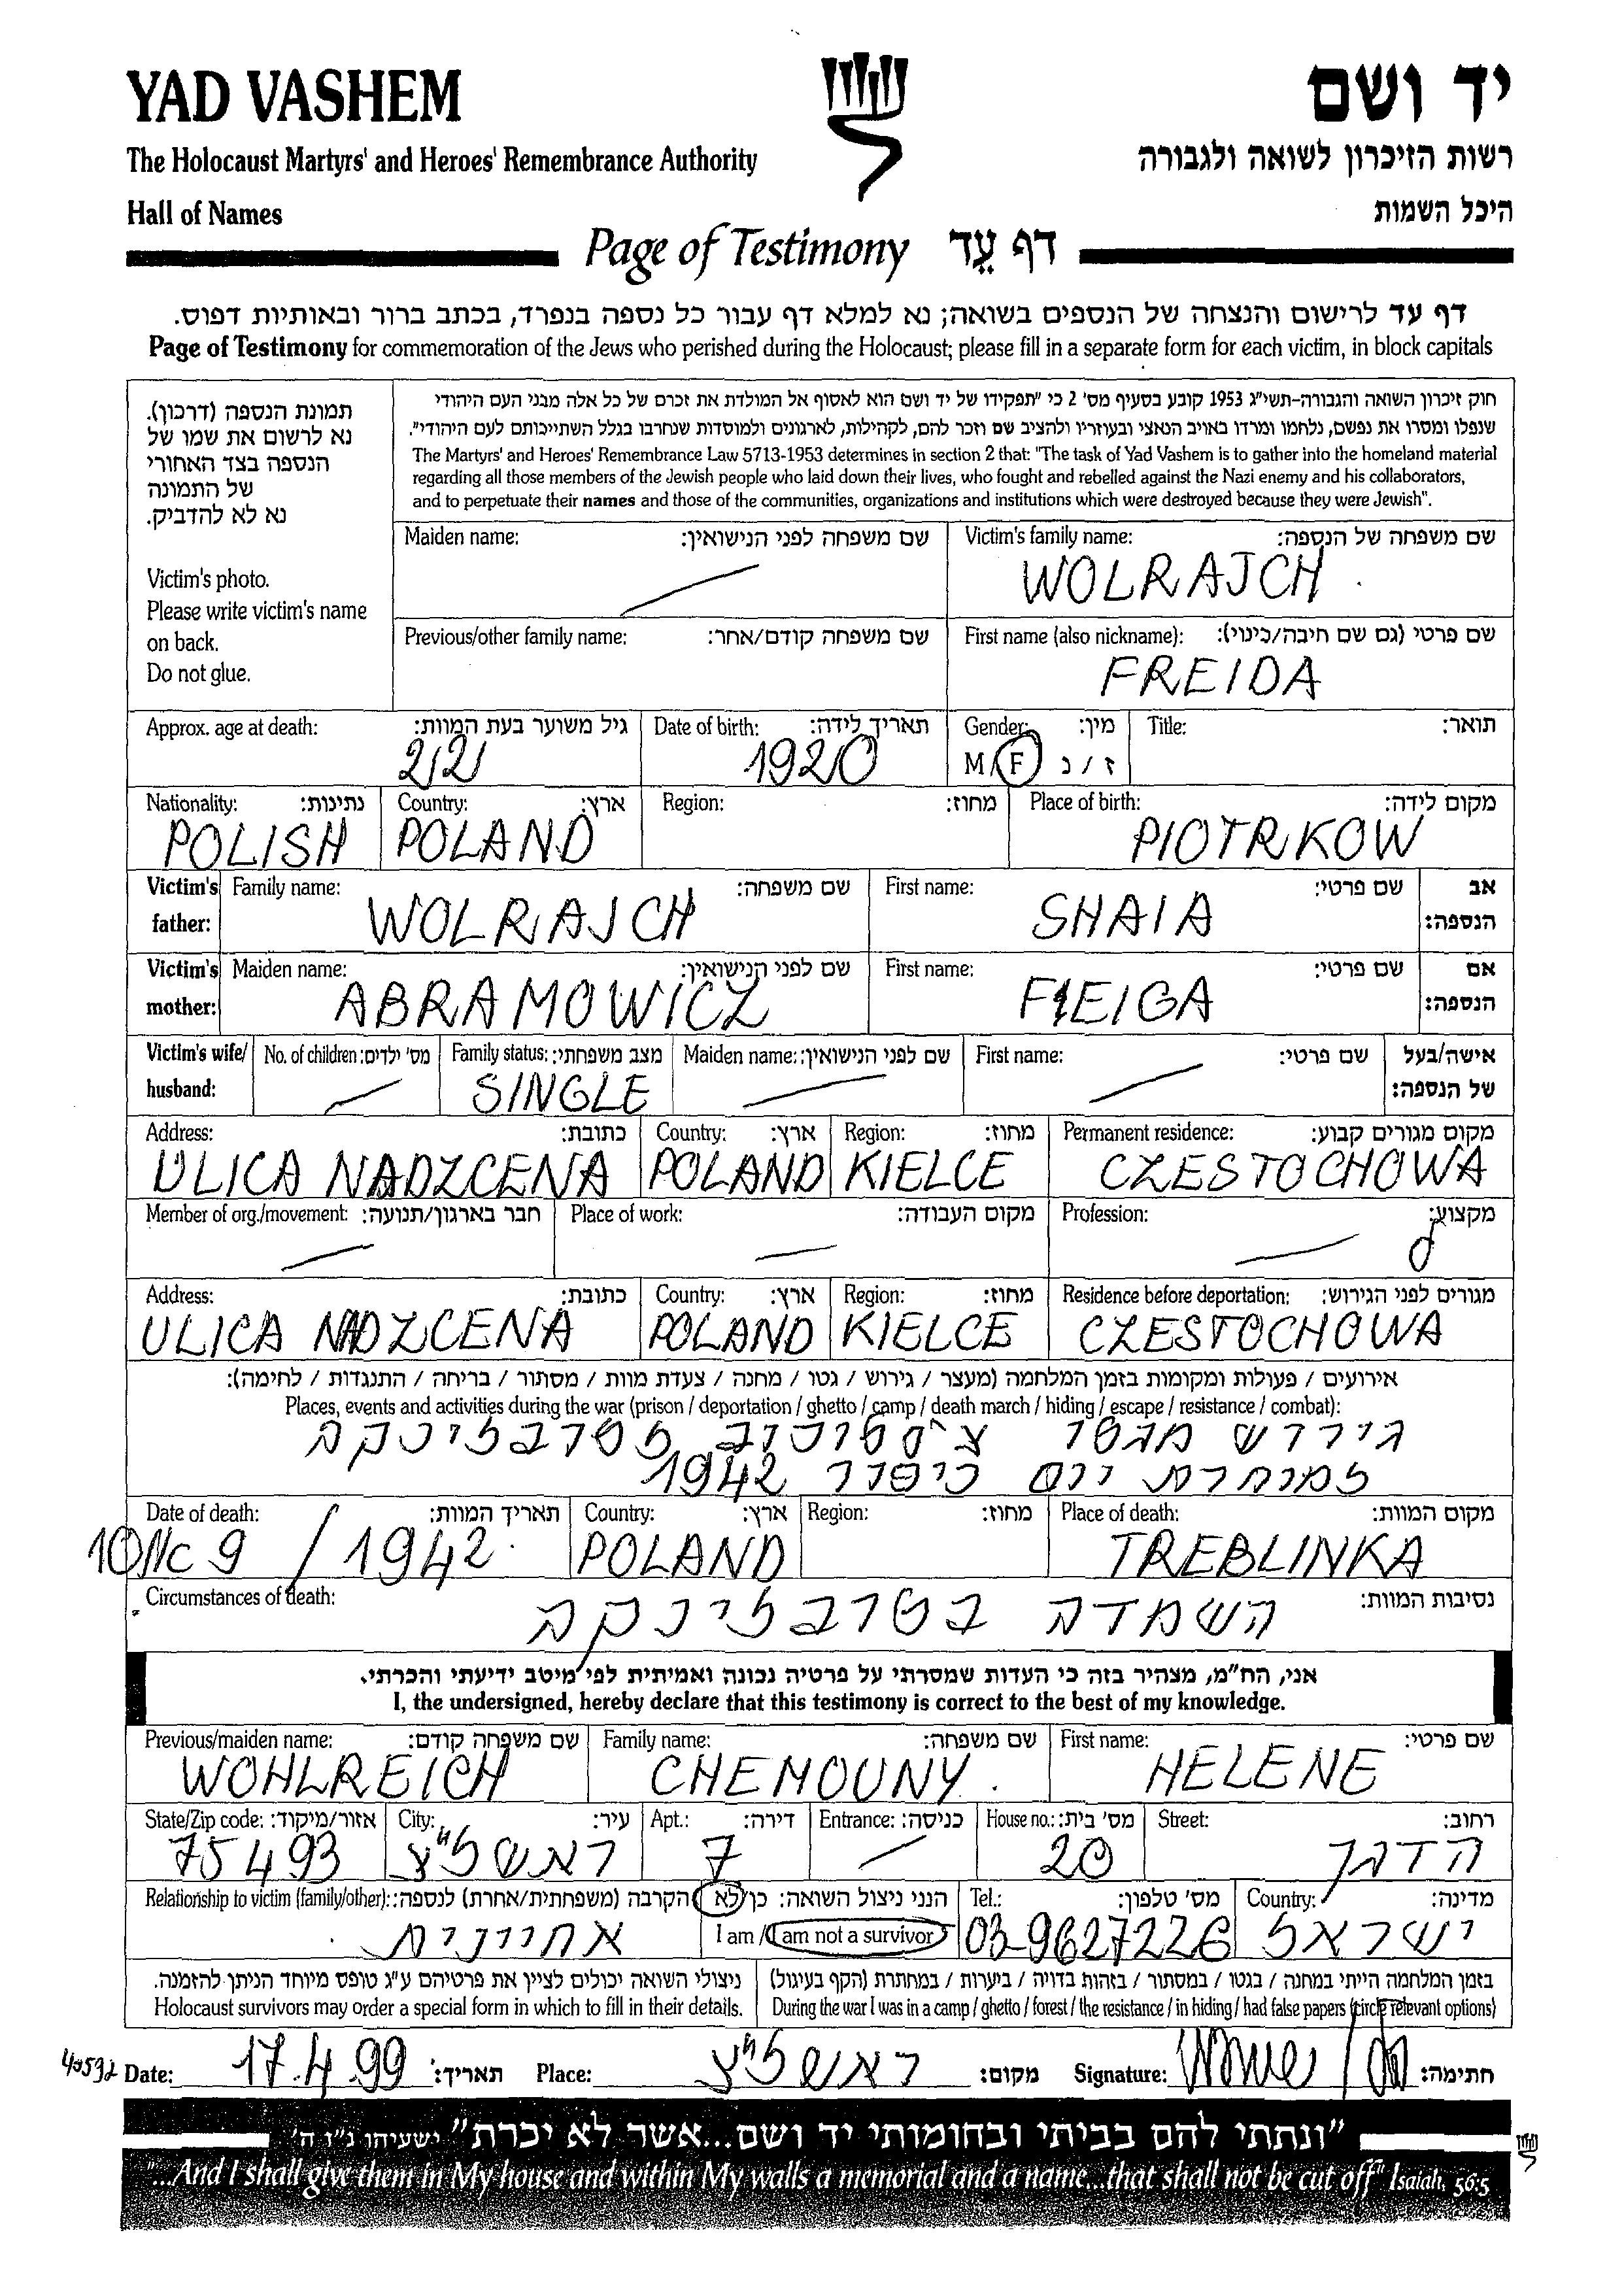 YAD VASHEM
יד ושם
The Holocaust Martyrs' and Heroes' Remembrance Authority
רשות הזיכרון לשואה ולגבורה
Hall of Names
היכל השמות
Page of Testimony דף עֵד
דף עד לרישום והנצחה של הנספים בשואה; נא למלא דף עבור כל נספה בנפרד, בכתב ברור ובאותיות דפוס.
Page of Testimony for commemoration of the Jews who perished during the Holocaust; please fill in a separate form for each victim, in block capitals
תמונת הנספה (דרכון).
נא לרשום את שמו של
הנספה בצד האחורי
של התמונה
נא לא להדביק.
Victim's photo.
Please write victim's name
on back.
Do not glue.
חוק זיכרון השואה והגבורה-תשי"ג 1953 קובע בסעיף מס' 2 כי "תפקידו של יד ושם הוא לאסוף אל המולדת את זכרם של כל אלה מבני העם היהודי
שנפלו ומסרו את נפשם, נלחמו ומרדו באויב הנאצי ובעוזריו ולהציב שם וזכר להם, לקהילות, לארגונים ולמוסדות שנחרבו בגלל השתייכותם לעם היהודי".
The Martyrs' and Heroes' Remembrance Law 5713-1953 determines in section 2 that: "The task of Yad Vashem is to gather into the homeland material
regarding all those members of the Jewish people who laid down their lives, who fought and rebelled against the Nazi enemy and his collaborators,
and to perpetuate their names and those of the communities, organizations and institutions which were destroyed because they were Jewish".
Maiden name: שם משפחה לפני הנישואין:
Victim's family name: שם משפחה של הנספה:
WOLRAJCH
Previous/other family name: שם משפחה קודם/אחר:
First name (also nickname): שם פרטי (גם שם חיבה/כינוי):
FREIDA
Approx. age at death: גיל משוער בעת המוות:
22
Date of birth: תאריך לידה:
1920
Gender: מין:
M/F ז/נ
Title: תואר:
Nationality: נתינות:
POLISH
Country: ארץ:
POLAND
Region: מחוז:
Place of birth: מקום לידה:
PIOTRKOW
Victim's father:
Family name: שם משפחה:
WOLRAJCH
First name: שם פרטי:
SHAIA
אב הנספה:
Victim's mother:
Maiden name: שם לפני הנישואין:
ABRAMOWICZ
First name: שם פרטי:
FEIGA
אם הנספה:
Victim's wife/ husband:
No. of children: מס' ילדים:
Family status: מצב משפחתי:
SINGLE
Maiden name: שם לפני הנישואין:
First name: שם פרטי:
אישה/בעל של הנספה:
Address: כתובת:
ULICA NADZCENA
Country: ארץ:
POLAND
Region: מחוז:
KIELCE
Permanent residence: מקום מגורים קבוע:
CZESTOCHOWA
Member of org./movement: חבר בארגון/תנועה:
Place of work: מקום העבודה:
Profession: מקצוע:
Address: כתובת:
ULICA NADZCENA
Country: ארץ:
POLAND
Region: מחוז:
KIELCE
Residence before deportation: מגורים לפני הגירוש:
CZESTOCHOWA
אירועים / פעולות ומקומות בזמן המלחמה (מעצר / גירוש / גטו / מחנה / צעדת מוות / מסתור / בריחה / התנגדות / לחימה):
Places, events and activities during the war (prison / deportation / ghetto / camp / death march / hiding / escape / resistance / combat):
גירוש מגטו צ'סטוכוב לטרבלינקה
למוחרת יום כיפור 1942
Date of death: תאריך המוות:
9 / 1942
Country: ארץ:
POLAND
Region: מחוז:
Place of death: מקום המוות:
TREBLINKA
Circumstances of death: נסיבות המוות:
השמדה בטרבלינקה
אני, הח"מ, מצהיר בזה כי העדות שמסרתי על פרטיה נכונה ואמיתית לפי מיטב ידיעתי והכרתי.
I, the undersigned, hereby declare that this testimony is correct to the best of my knowledge.
Previous/maiden name: שם משפחה קודם:
WOHLREICH
Family name: שם משפחה:
CHEMOUNY
First name: שם פרטי:
HELENE
State/Zip code: אזור/מיקוד:
75493
City: עיר:
ראשל"צ
Apt.: דירה:
7
Entrance: כניסה:
House no.: מס' בית:
20
Street: רחוב:
הדגן
Relationship to victim (family/other): הקרבה (משפחתית/אחרת) לנספה:
אחיינית
הנני ניצול השואה: כן/לא
I am / I am not a survivor
Tel.: מס' טלפון:
03-9627226
Country: מדינה:
ישראל
ניצולי השואה יכולים לציין את פרטיהם ע"ג טופס מיוחד הניתן להזמנה.
Holocaust survivors may order a special form in which to fill in their details.
בזמן המלחמה הייתי במחנה / בגטו / במסתור / בזהות בדויה / ביערות / במחתרת (הקף בעיגול)
During the war I was in a camp / ghetto / forest / the resistance / in hiding / had false papers (circle relevant options)
Date: 17.4.99 תאריך:
Place: ראשל"צ מקום:
Signature: חתימה:
"ונתתי להם בביתי ובחומותי יד ושם...אשר לא יכרת" ישעיהו נ"ו ה'
"...And I shall give them in My house and within My walls a memorial and a name...that shall not be cut off" Isaiah, 56:5